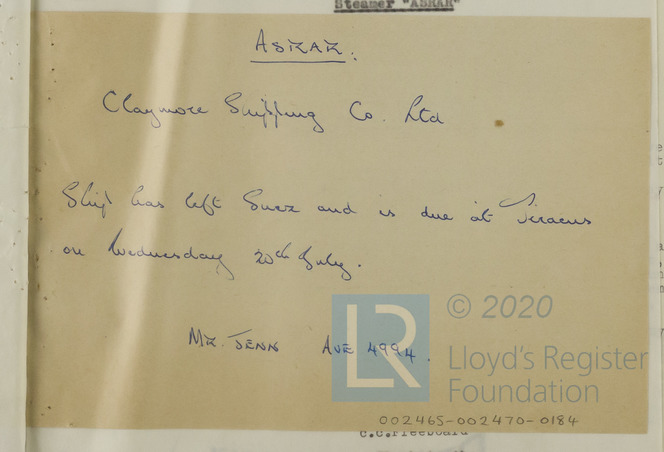 Steamer "ASKAR"
ASKAR.
Claymore Shipping Co. Ltd
Ship has left Suez and is due at Piraeus
on Wednesday 20th July.
MR. JENN AVE 4994.
LR
© 2020
Lloyd's Register
Foundation
002465-002470-0184